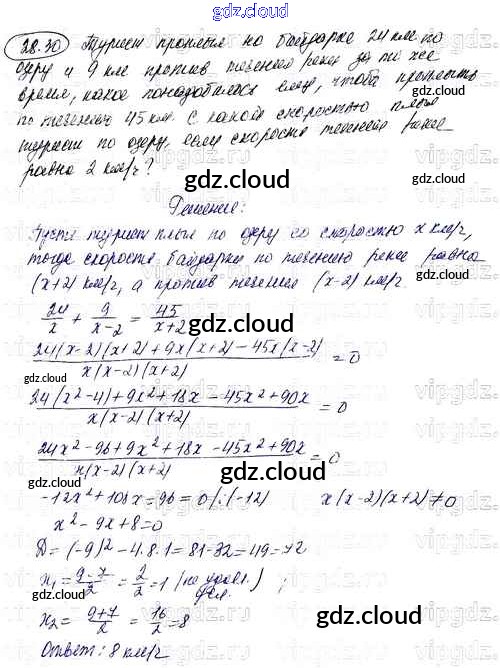 28.30 Турист проплыл на байдарке 24 км по
озеру и 9 км против течения реки за то же
время, какое понадобилось ему, чтобы проплыть
по течению 45 км. С какой скоростью плыл
турист по озеру, если скорость течения реки
равна 2 км/ч?
gdz.cloud
Решение:
Пусть турист плыл по озеру со скоростью x км/ч,
тогда скорость байдарки по течению реки равна
(x+2) км/ч, а против течения (x-2) км/ч.
gdz.cloud
24/x + 9/(x-2) = 45/(x+2)
gdz.cloud
(24(x-2)(x+2)+9x(x+2)-45x(x-2))/(x(x-2)(x+2)) = 0
gdz.cloud
(24(x²-4)+9x²+18x-45x²+90x)/(x(x-2)(x+2)) = 0
gdz.cloud
(24x²-96+9x²+18x-45x²+90x)/(x(x-2)(x+2)) = 0
gdz.cloud
-12x²+108x-96=0 /:(-12) x(x-2)(x+2)≠0
gdz.cloud
x²-9x+8=0
gdz.cloud
D=(-9)²-4·8·1=81-32=49=7²
x₁=(9-7)/2=2/2=1 (не удовл.
gdz.cloud
x₂=(9+7)/2=16/2=8
gdz.cloud
Ответ: 8 км/ч
gdz.cloud